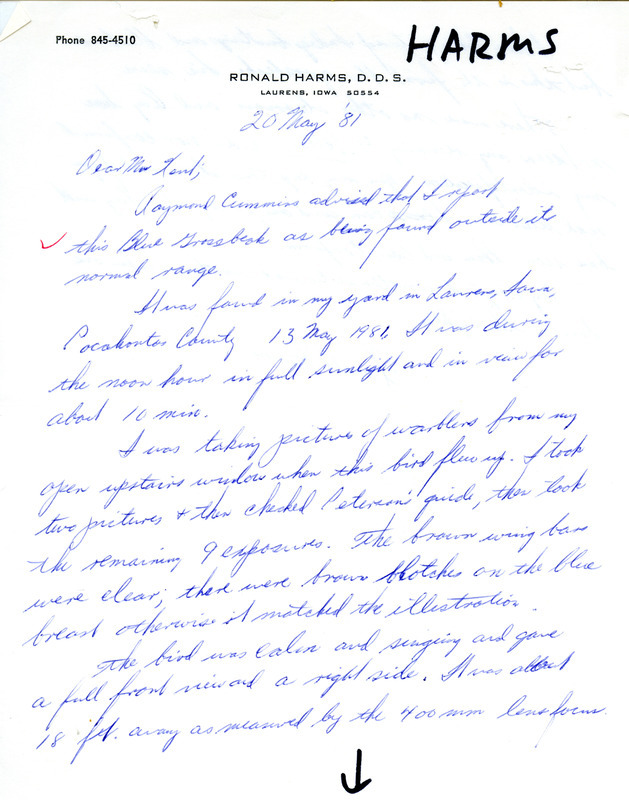 Phone 845-4510
HARMS
RONALD HARMS, D. D. S.
LAURENS, IOWA 50554
20 May '81
Dear Mr Kent;
Raymond Cummins advised that I report
this Blue Grossbeak as being found outside its
normal range.
It was found in my yard in Laurens, Iowa,
Pocahontas County 13 May 1981. It was during
the noon hour in full sunlight and in view for
about 10 min.
I was taking pictures of warblers from my
open upstairs window when this bird flew up. I took
two pictures & then checked Peterson's guide, then took
the remaining 9 exposures. The brown wing bars
were clear; there were brown blotches on the blue
breast otherwise it matched the illustration.
The bird was calm and singing and gave
a full front view and a right side. It was about
18 ft. away as measured by the 400 mm lens focus.